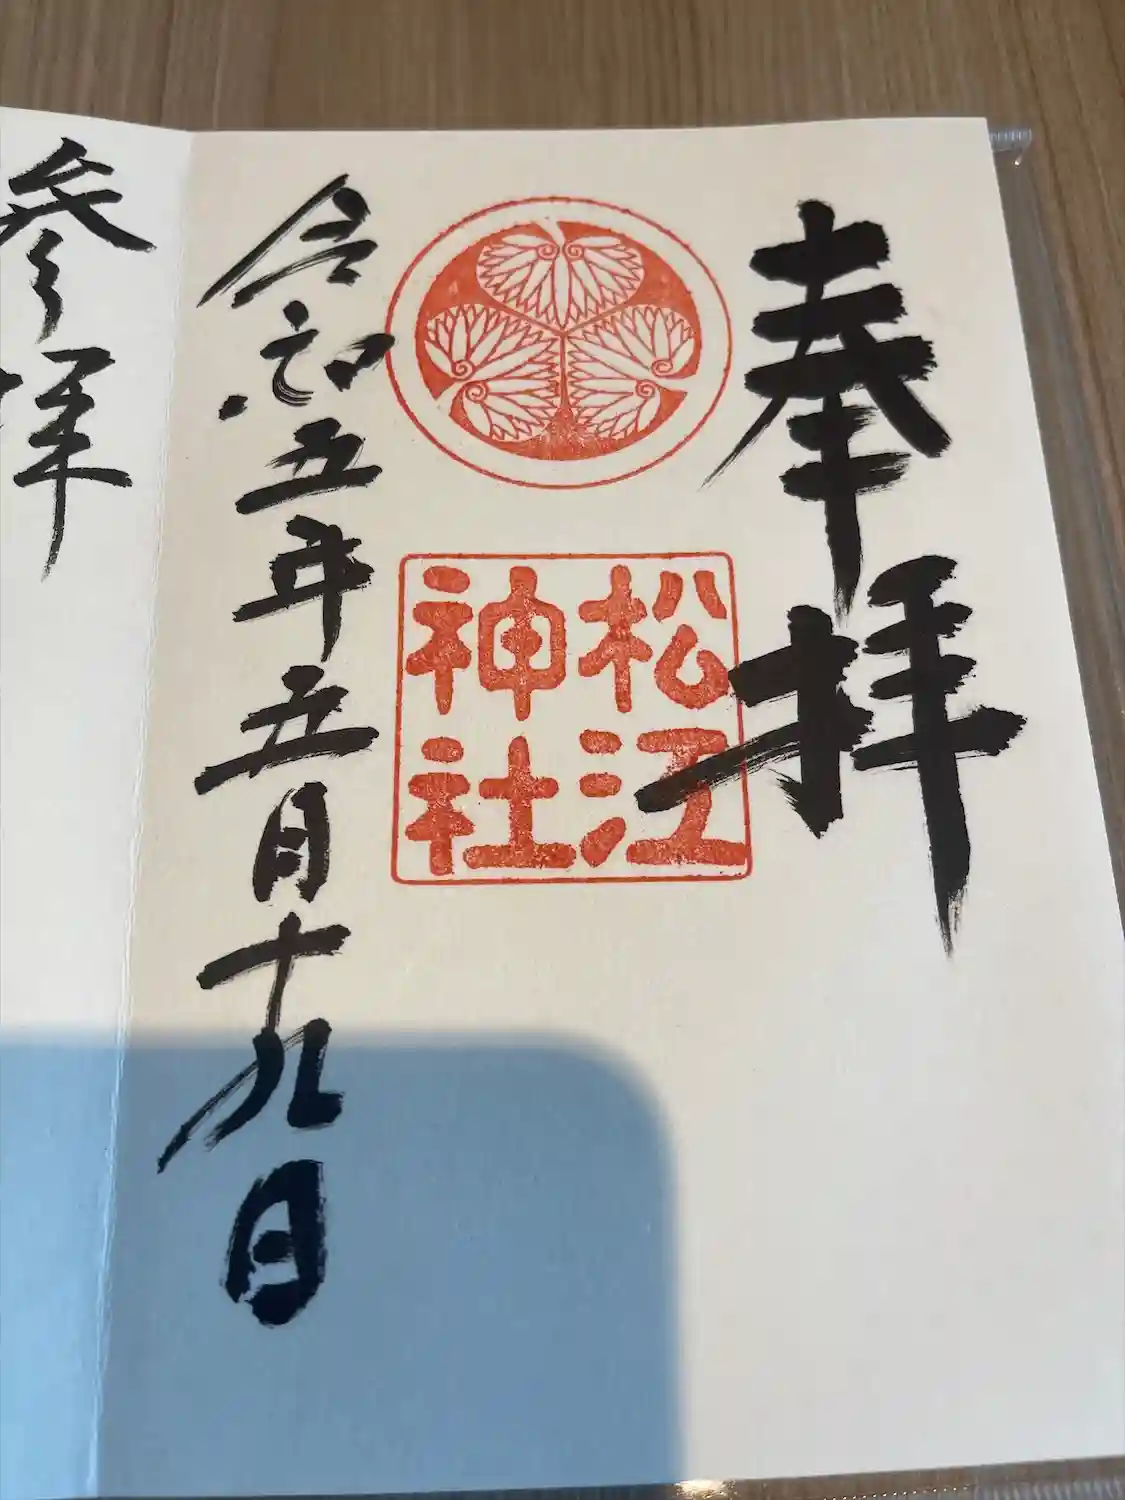 奉拝
松江
神社
令和五年五月十九日
参拝